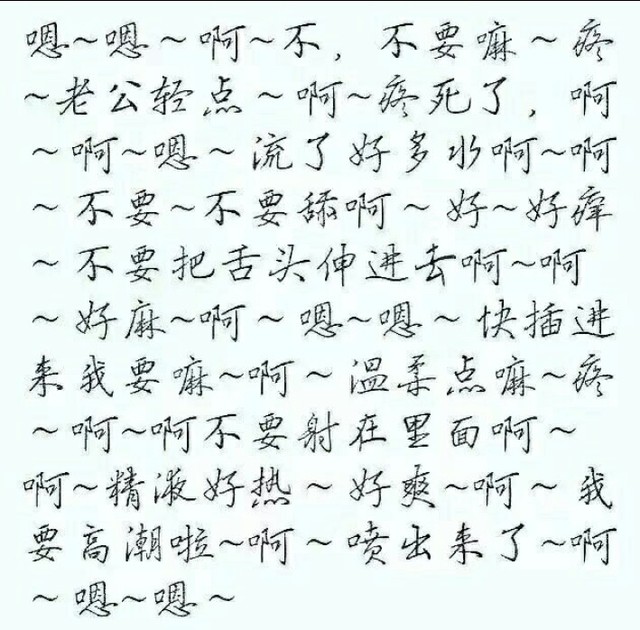 嗯~嗯~啊~不，不要嘛~疼
~老公轻点~啊~疼死了，啊
~啊~嗯~流了好多水啊~啊
~不要~不要舔啊~好~好痒
~不要把舌头伸进去啊~啊
~好麻~啊~嗯~嗯~快插进
来我要嘛~啊~温柔点嘛~疼
~啊~啊不要射在里面啊~
啊~精液好热~好爽~啊~我
要高潮啦~啊~喷出来了~啊
~嗯~嗯~